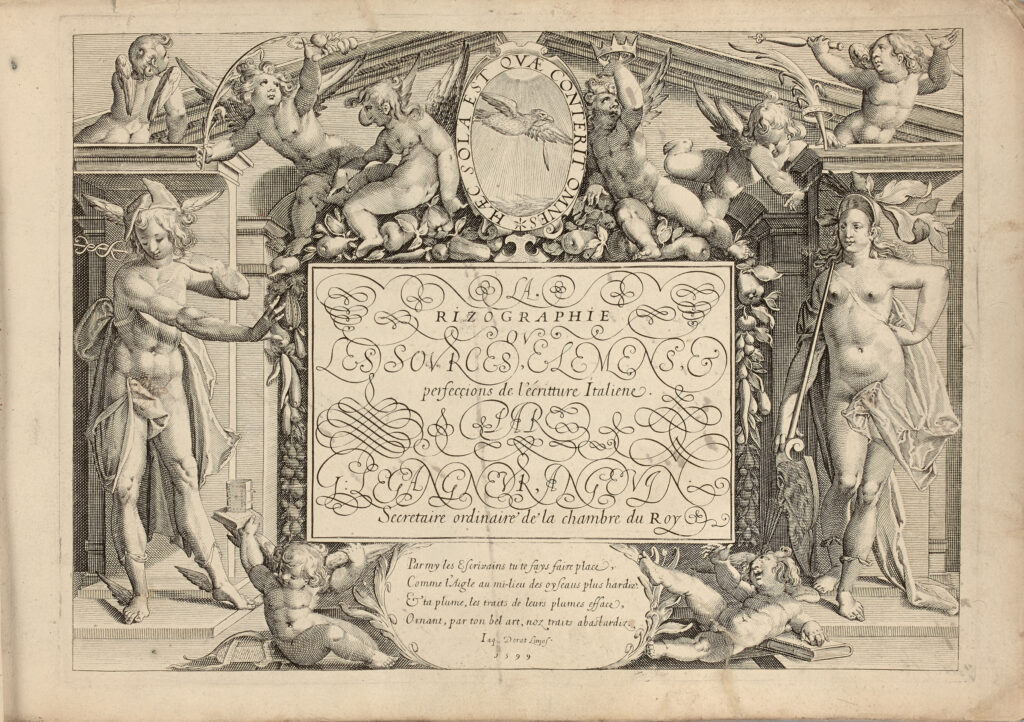 HÆC SOLA EST QVÆ CONTERIT OMNES
LA
RIZOGRAPHIE
OV
LES SOVRCES, ELEMENS, &
perfecçions de l'ècritture Italiene.
PAR
ANGEVIN
Secretaire ordinaire de la chambre du Roy
Par my les Escrivains tu te fays faire place,
Comme l'Aigle au mi-lieu des oyseaux plus hardiz:
Et ta plume, les traits de leurs plumes efface,
Ornant, par ton bèl art, noz traits abastardiz
1599